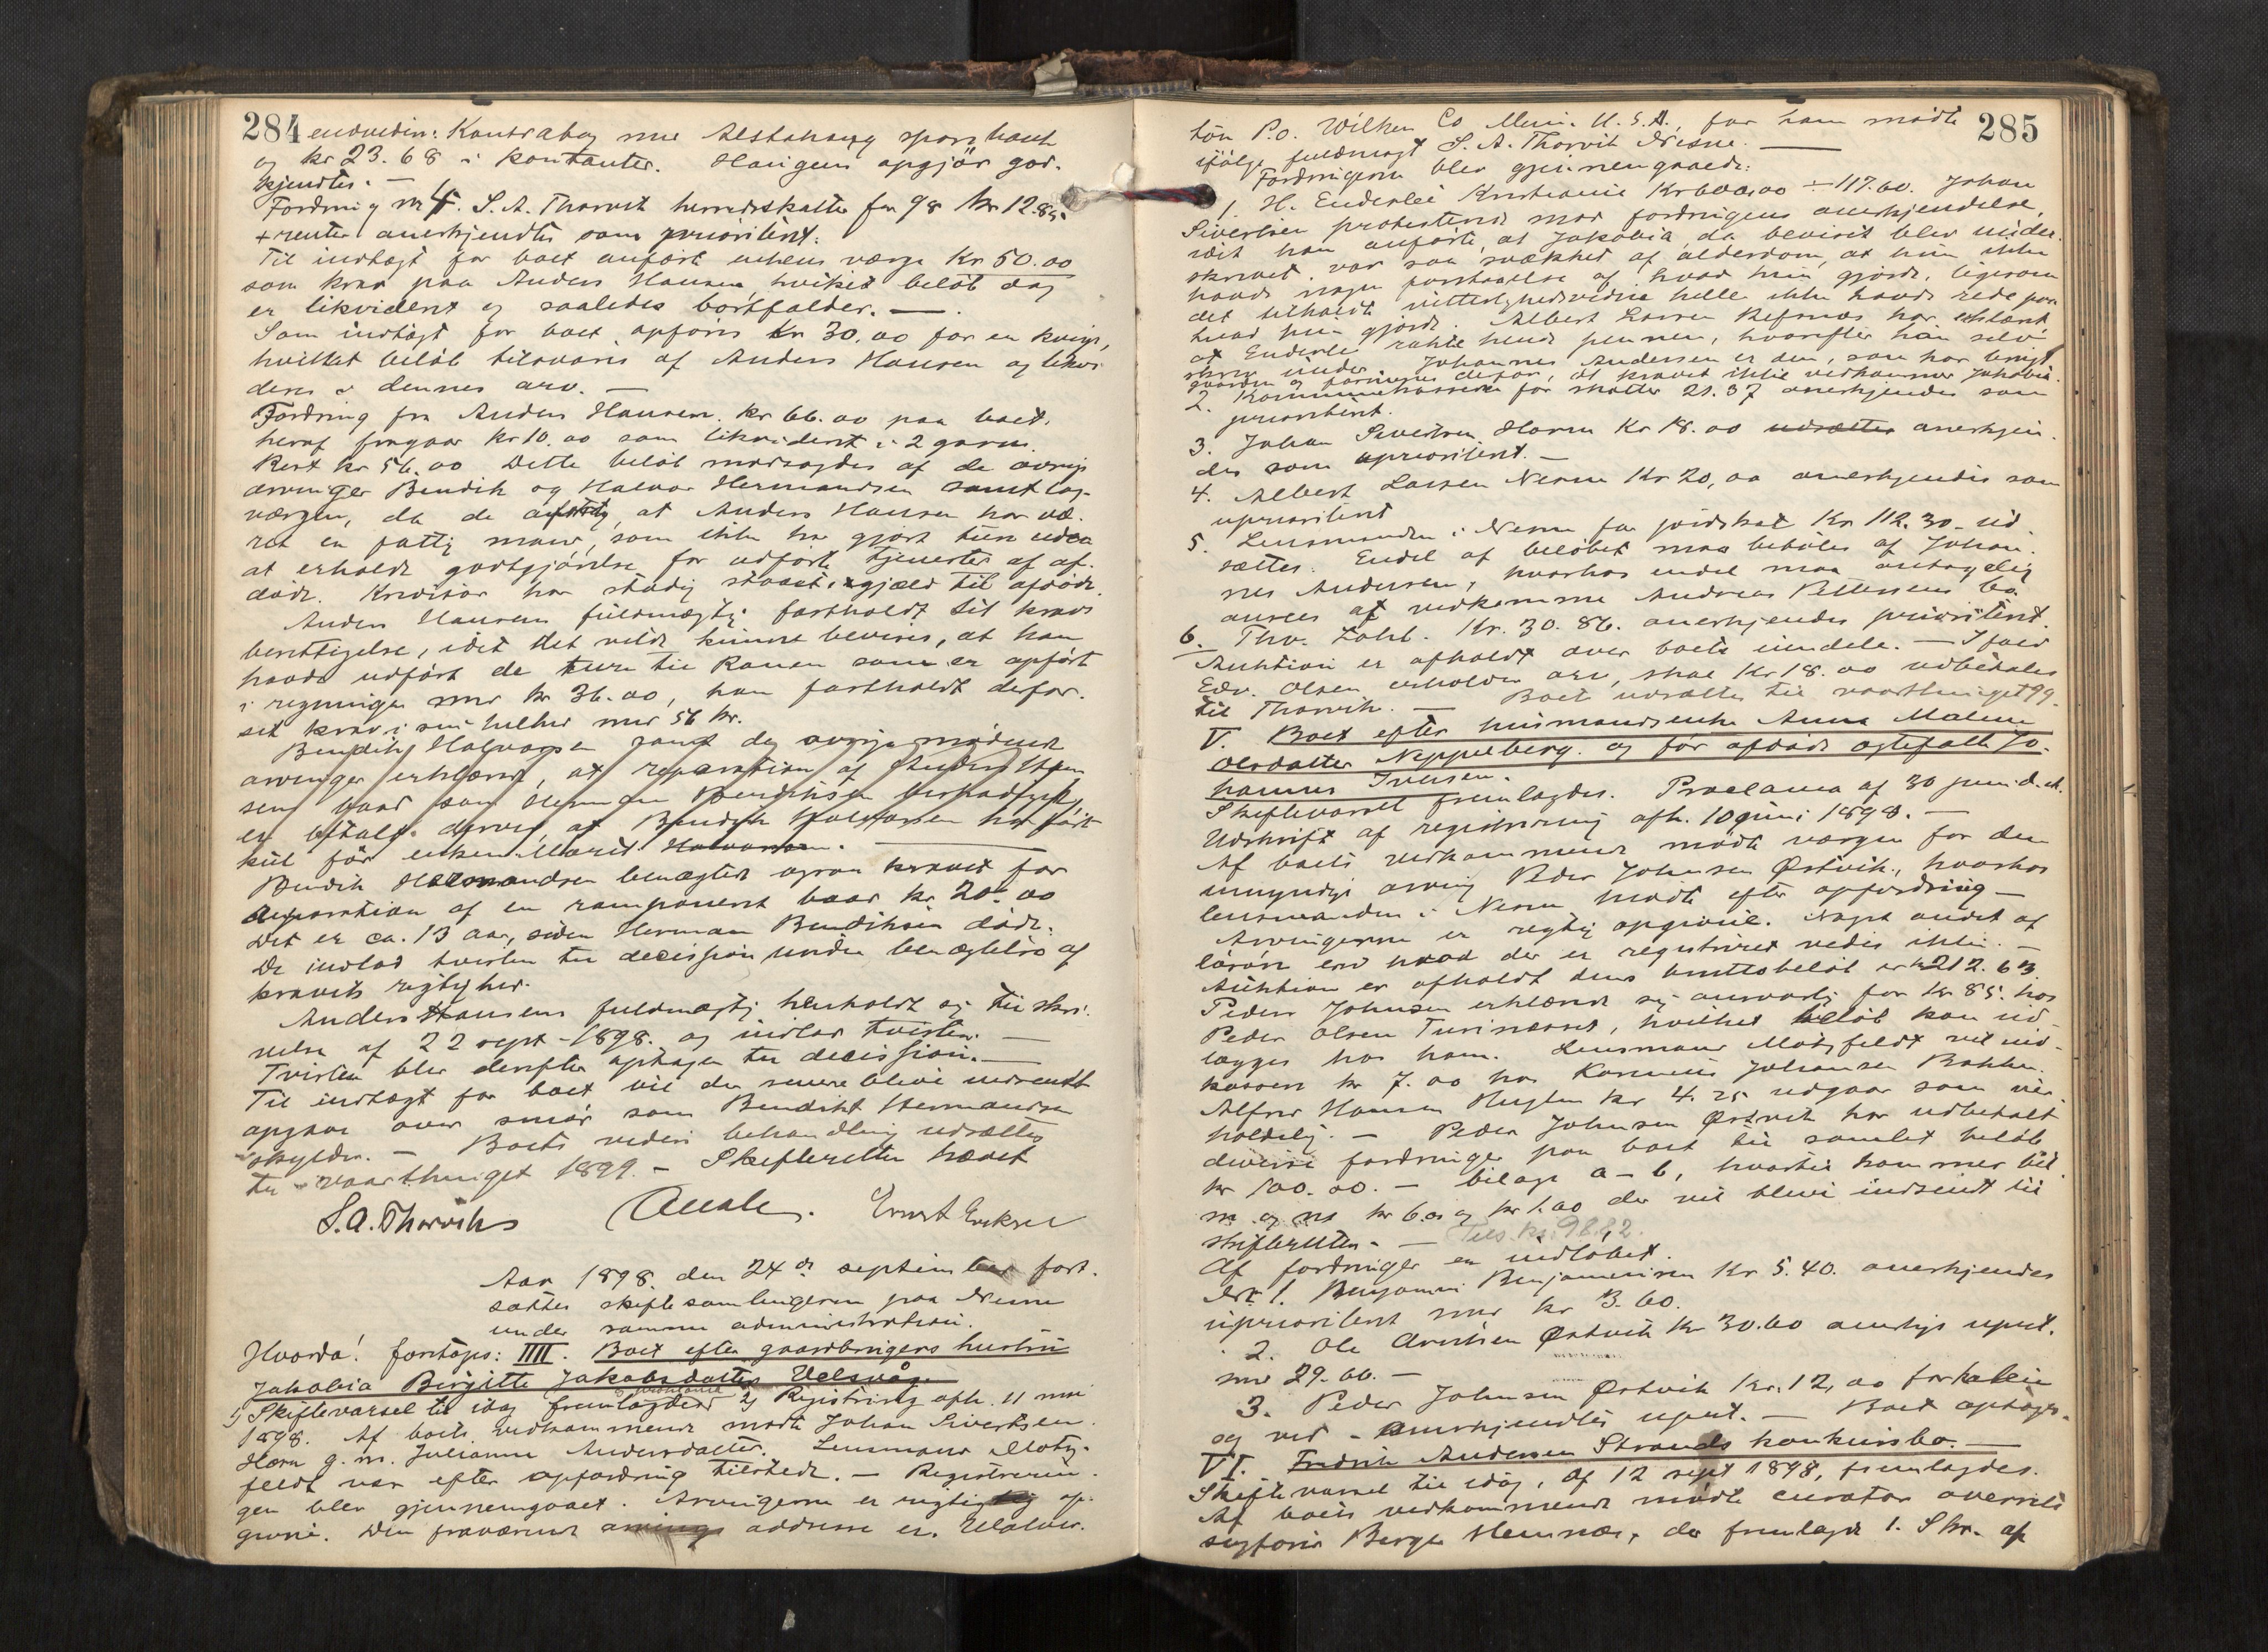 284 endvidere: Kontrabog med Alstahaug sparebank
og kr 23.68 i kontanter. Haugens opgjör god-
kjendtes. —
Fordring nr 4. S. A. Thorvik herredsskatter for 98 kr 12.85
+ renter anerkjendtes som prioritert.
Til indtægt for boet anført enkens værge Kr 50.00
som krav paa Anders Hansen, hvilket beløb dog
er likvidert og saaledes bortfalder. —
Som indtægt for boet opføres kr 30.00 for en kvige,
hvilket beløb tilsvares af Anders Hansen og likvi
deres i dennes arv. —
Fordring fra Anders Hansen. kr 66.00 paa boet.
heraf fragaar kr 10.00 som likvidert i 2 garn.
Rest kr 56.00 Dette beløb modsagdes af de øvrige
arvinger Bendik og Halvor Hermandsen samt lag-
værgen, da de anförte, at Anders Hansen har væ-
ret en fattig mand, som ikke har gjort turen uden
at erholde godtgjörelse for udförte tjenester af af-
döde. Kreditor har stadig staaet i gjæld til afdöde.
Anders Hansens fuldmægtig fastholdt sit kravs
berettigelse, idet det vilde kunne bevises, at han
havde udført de ture til Ranen som er opfört
i regningen med kr 36.00, han fastholdt derfor
sit krav i sin helhed med 56 kr.
Bendik Halvorsen samt de øvrige mødende
arvinger erklærede, at reparation af Anders Han
sens baad som Herman Bendiksen beskadigede,
er betalt derved, at Bendik Halvorsen har fört
kul för enken Marit Halvorsen.
Bendik Hermandsen benægtede ogsaa kravet for
Reparation af en ramponert baad kr 20.00
Det er ca. 13 aar, siden Herman Bendiksen döde.
De indlod tvisten til decission under benægtelse af
kravets rigtighed.
Anders Hansens fuldmægtig henholdt sig til skri-
velse af 22 sept 1898. og indlod tvisten. —
Tvisten blev derefter optagen til decission. —
Til indtægt for boet vil der senere blive indsendt
opgave over smör som Bendikt Hermandsen
skylder. — Boets videre behandling udsættes
til vaarthinget 1899. — Skifteretten hævet
S. A. Thorvik Ernst Eriksen
Aar 1898 den 24de september fort-
sattes skiftesamlingerne paa Nesne
under samme administration.
Hvorda! foretoges: IIII. Boet efter gaardbrugers hustru
Jakobia Birgitte Jakobsdatter Uelsvåg.
1) Skiftevarsel til idag fremlagdes 2) Registrering afh. 11 mai
1898. Af boets vedkommende mødte Johan Sivertsen
Horn g. m. Julianna Andersdatter. Lensmand Motz-
feldt var efter opfordring tilstede. — Registrerin-
gen blev gjennemgaaet. Arvingerne er rigtig op-
givne. Den fraværende arvings addresse er.
285
ton P.o. Wilken Co Minn. U.S.A., for ham mødte
ifölge fuldmagt S. A. Thorvik Nesne. —
Fordringerne blev gjennemgaaede:
1. H. Enderlei Kristiania Kr 600.00 ÷ 117.60. Johan
Sivertsen protesterede mod fordringens anerkjendelse,
idet han anførte, at Jakobia da beviset blev under-
skrevet, var saa svækket af alderdom, at hun ikke
havde nogen forstaaelse af hvad hun gjorde, ligesom
det tilholdte vitterlighedsvidne heller ikke havde rede paa
hvad hun gjorde. Albert Larsen Refsnes har erklæret
at Enderle rakte hende pennen, hvorefter han selv
skrev under. Johannes Andersen er den, som har brugt
gaarden og formenes derfor, at kravet ikke vedkommer Jakobia.
2. Kommunekassereren for skatter 21.37 anerkjendes som
prioritert.
3. Johan Sivertsen Horn Kr 18.00 udsættes anerkjen-
des som uprioritert. —
4. Albert Larsen Nesne Kr 20,00 anerkjendes som
uprioritert
5. Lensmanden i Nesne for jordskat Kr 112.30 ud-
sættes. Endel af beløbet maa betales af Johan-
nes Andersen, hvorhos endel maa antagelig
ansees at vedkomme Andreas Pettersens bo.
6. Thv. Zahl. Kr. 30.86. anerkjendes prioritert.
Auktion er afholdt over boets eiendele. — Ifald
Edv. Olsen erholder arv, skal Kr 18.00 udbetales
til Thorvik. — Boet udsættes til vaarthinget 99.
V. Boet efter husmandsenke Anna Maline
Olesdatter Neppelberg. og før afdøde ægtefælle Jo-
hannes Iversen.
Skiftevarsel fremlagdes. Proclama af 30 juni d. å.
Udskrift af registrering afh. 10 juni 1898. —
Af boets vedkommende mødte værgen for den
umyndige arving Peder Johnsen Østvik, hvorhos
lensmanden i Nesne mødte efter opfordring —
Arvingerne er rigtig opgivne. Noget andet af
lösöre end hvad der er registreret vides ikke. —
Auktion er afholdt dens bruttobeløb er kr 212.63.
Peder Johnsen erklærede sig ansvarlig for kr 85. hos
Peder Olsen Turinæsset, hvilket beløb kan ud-
lægges hos ham. Lensmand Motzfeldt vil ind-
kassere kr 7.00 hos Kornius Johansen Bakken.
Alfred Hansen Hugla kr 4.25 udgaar som uer-
holdelig. — Peder Johnsen Østvik har udbetalt
diverse fordringer paa boet til samlet beløb
kr 100.00. — bilage a–b, hvortil kommer bil.
m og n kr 6.00 og kr 1.00 der vil blive indsendt til
skifteretten. — Tils. kr. 98.82.
Af fordringer er indløbet.
Nr 1. Benjamin Benjaminsen Kr 5.40. anerkjendes
uprioritert med kr 3.60.
2. Ole Arntsen Østvik kr 30.60 anerkjs uprt.
med 29.66. —
3. Peder Johnsen Østvik kr. 12,00 for
og ved – anerkjendtes uprt. — Boet optoges.
VI. Fredrik Andersen Strands konkursbo. —
Skiftevarsel til idag, af 12 sept 1898, fremlagdes.
Af boets vedkommende mødte curator overrets
sagfører Berge Hemnæs, der fremlagde 1. Skr. af